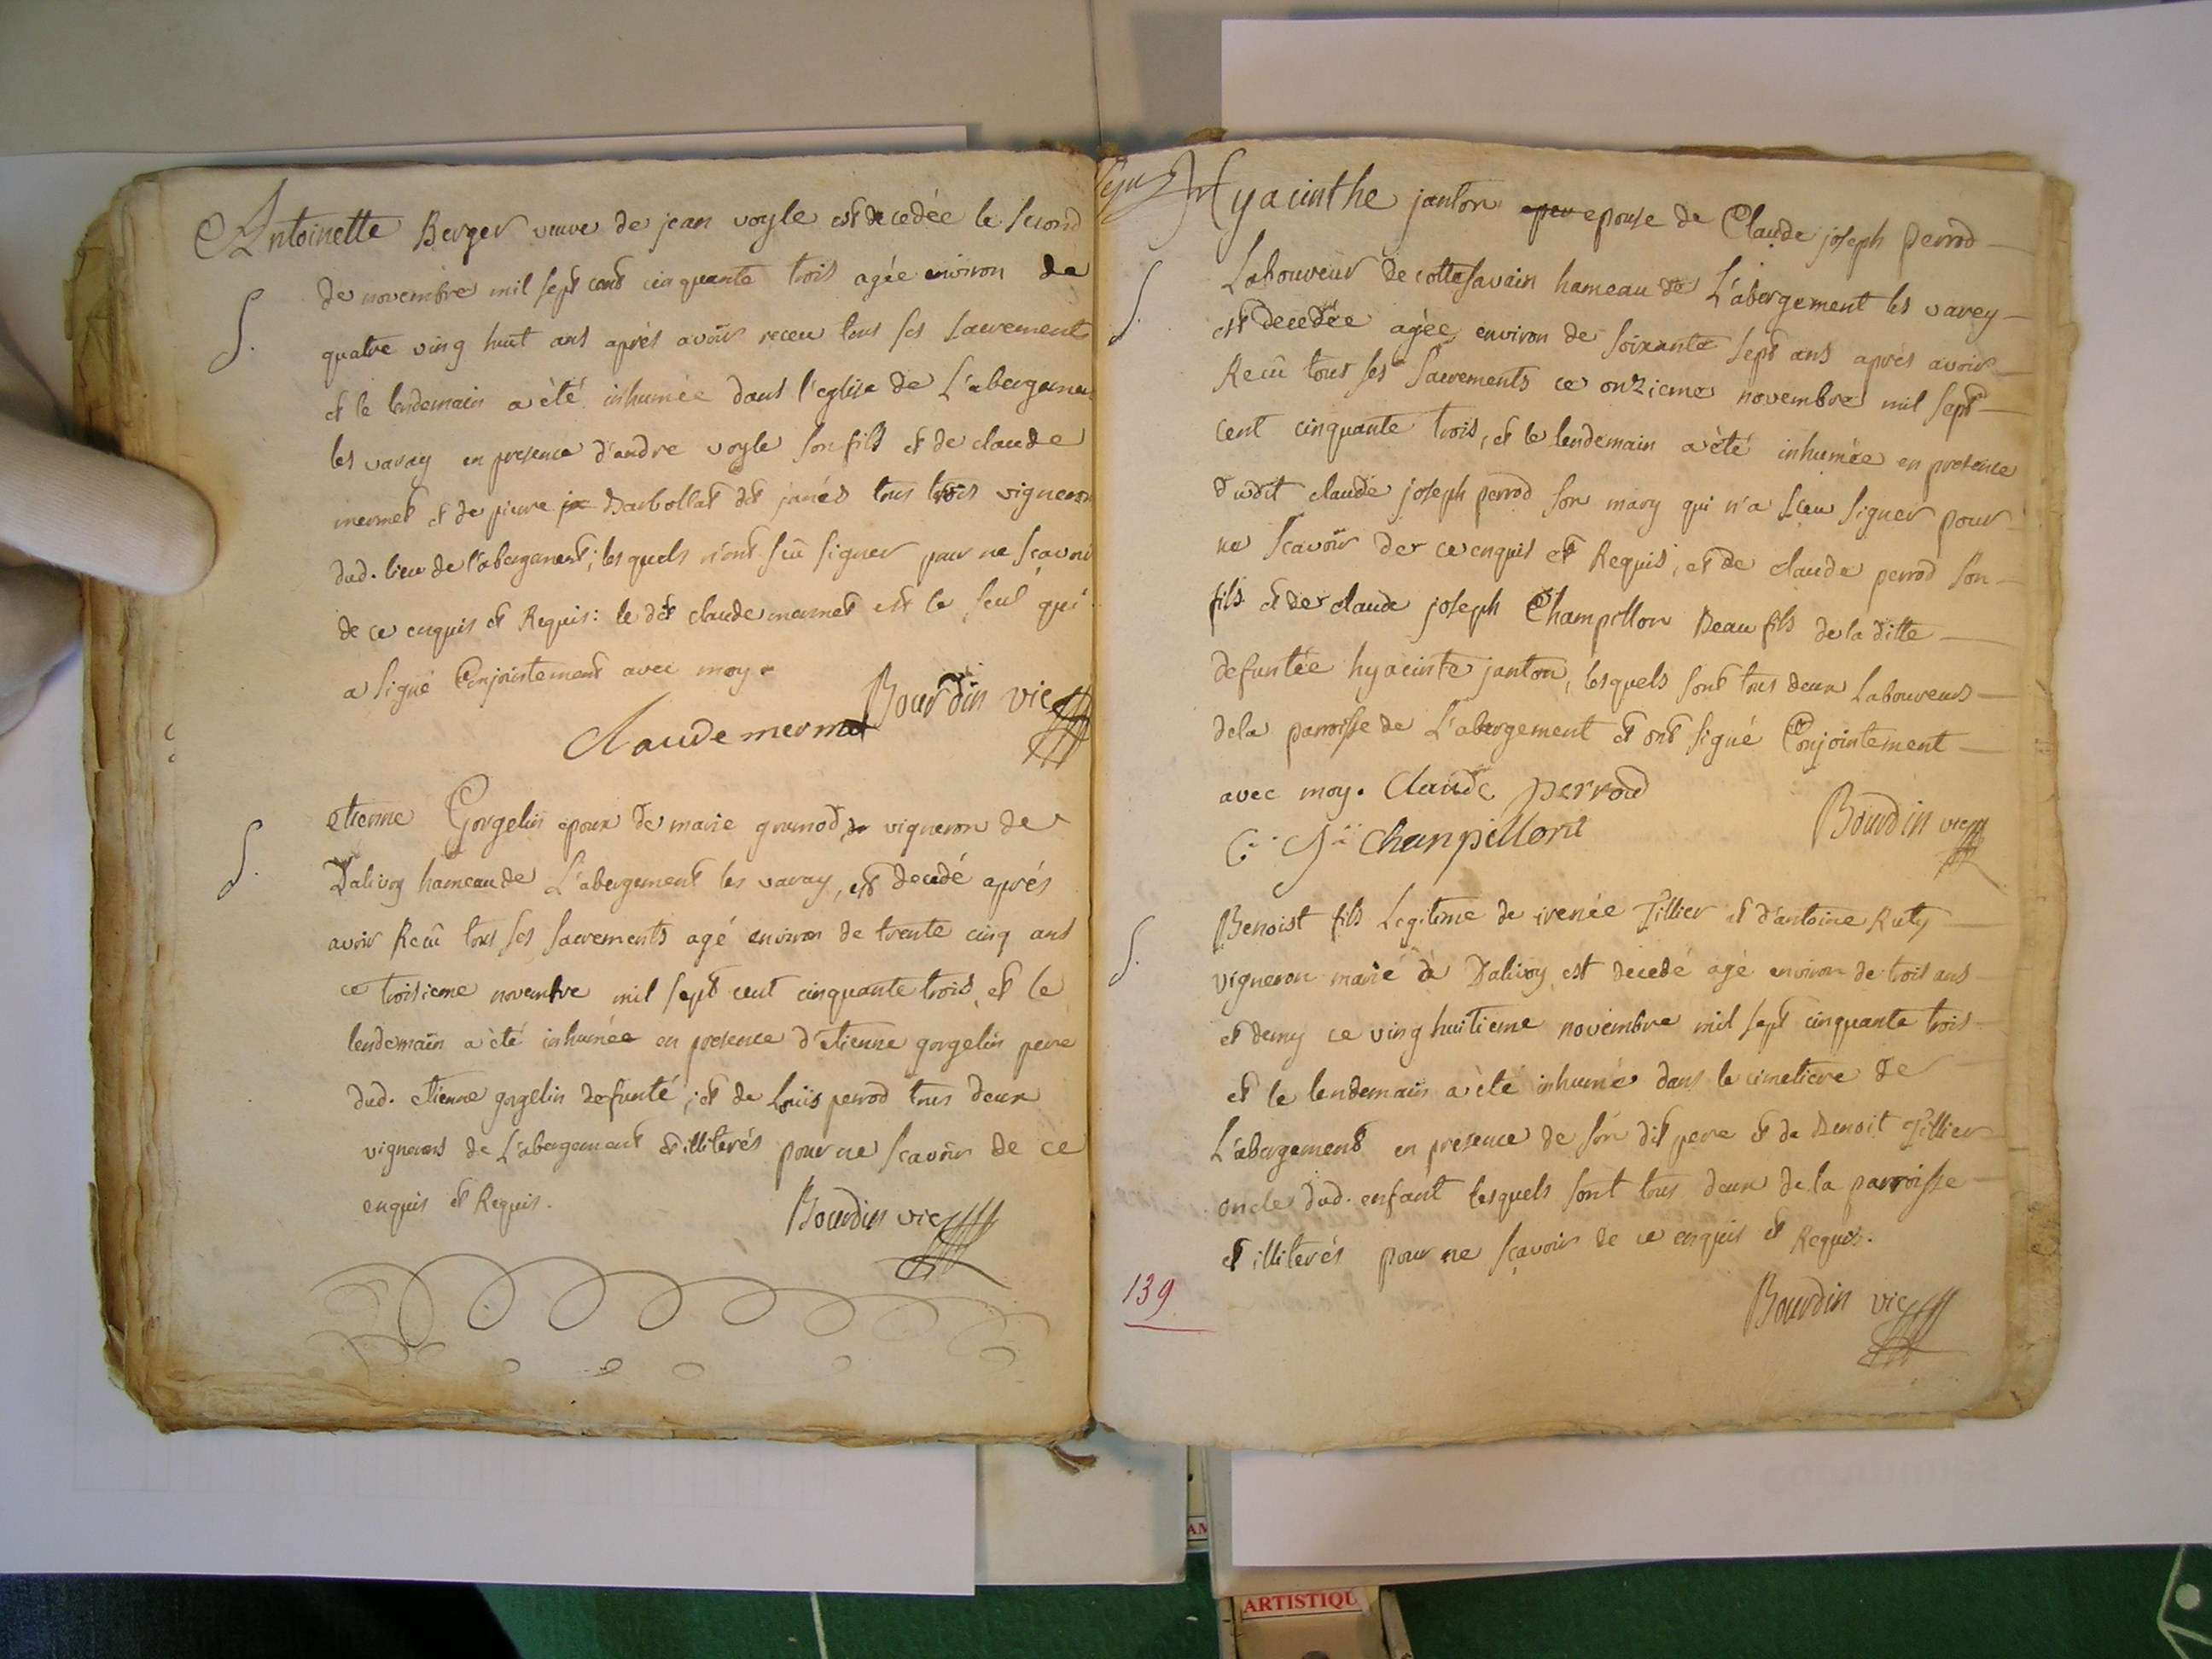 Antoinette Berger veuve de jean voyle est decedée le second
de novembre mil sept cent cinquante trois agée environ de
S.
quatre ving huit ans aprés avoir receu tous ses sacrement
et le lendemain a été inhumée dans l'eglise de L'abergemen
les varay en presence d'andre voyle son fils et de claude
mermet et de pierre Barbollat dit janés tous trois vigneron
dud. lieu de l'abergement; les quels n'ont scû signer pour ne scavoir
de ce enquis et Requis: le dit claude mermet est le seul qui
a signé Conjointement avec moy.
Bourdin vic
Claude mermet
etienne Gorgelin epoux de marie grumod vigneron de
S.
Dalivoy hameau de L'abergement les varay, est decedé aprés
avoir Recû tous ses sacrements agé environ de trente cinq ans
ce troisieme novembre mil sept cent cinquante trois, et le
lendemain a été inhumée en presence d'etienne gorgelin pere
dud. etienne gorgelin defunté; et de Louis perrod tous deux
vignerons de L'abergement et illiterés pour ne scavoir de ce
enquis et Requis.
Bourdin vic
Hyacinthe janton epouse de Claude joseph perrod
Laboureur de cottesavain hameau de L'abergement les varey
S.
est decedée agée environ de soixante sept ans aprés avoir
Recû tous ses sacrements ce onzieme novembre mil sept
cent cinquante trois, et le lendemain a été inhumée en presence
dudit claude joseph perrod son mary qui n'a sceu signer pour
ne scavoir de ce enquis et Requis, et de claude perrod son
fils et de claude joseph Champillon Beau fils de la ditte
defuntée hyacinte janton, lesquels sont tous deux Laboureurs
dela parroisse de L'abergement et ont signé Conjointement
avec moy. Claude perrod
Bourdin vic
C: J: Chanpillont
Benoist fils Legitime de irenée Tillier et d'antoine Ruty
S.
vigneron marié à Dalivoy, est decedé agé environ de trois ans
et demy ce ving huitieme novembre mil sept cinquante trois
et le lendemain a été inhumé dans le cimetiere de
L'abergement en presence de son dit pere et de Benoit Tillier
oncle dud. enfant lesquels sont tous deux de la parroisse
et illiterés pour ne sçavoir de ce enquis et Requis.
139
Bourdin vic
ARTISTIQU